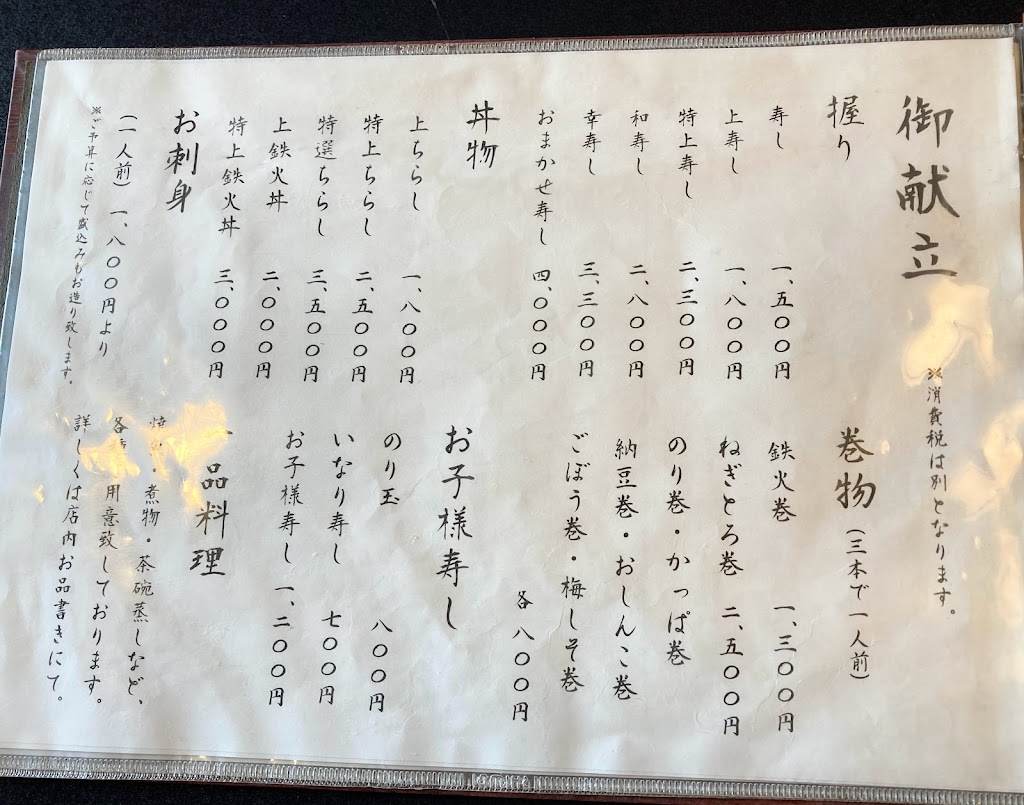 御献立
※消費税は別となります。
握り
寿し 一、五〇〇円
上寿し 一、八〇〇円
特上寿し 二、三〇〇円
和寿し 二、八〇〇円
幸寿し 三、三〇〇円
おまかせ寿し 四、〇〇〇円
丼物
上ちらし 一、八〇〇円
特上ちらし 二、五〇〇円
特選ちらし 三、五〇〇円
上鉄火丼 二、〇〇〇円
特上鉄火丼 三、〇〇〇円
お刺身
(一人前) 一、八〇〇円より
※ご予算に応じて盛込みもお造り致します。
巻物(三本で一人前)
鉄火巻 一、三〇〇円
ねぎとろ巻 二、五〇〇円
のり巻・かっぱ巻
納豆巻・おしんこ巻
ごぼう巻・梅しそ巻
各八〇〇円
お子様寿し
のり玉 八〇〇円
いなり寿し 七〇〇円
お子様寿し 一、二〇〇円
品料理
・煮物・茶碗蒸しなど、
各 用意致しております。
詳しくは店内お品書きにて。